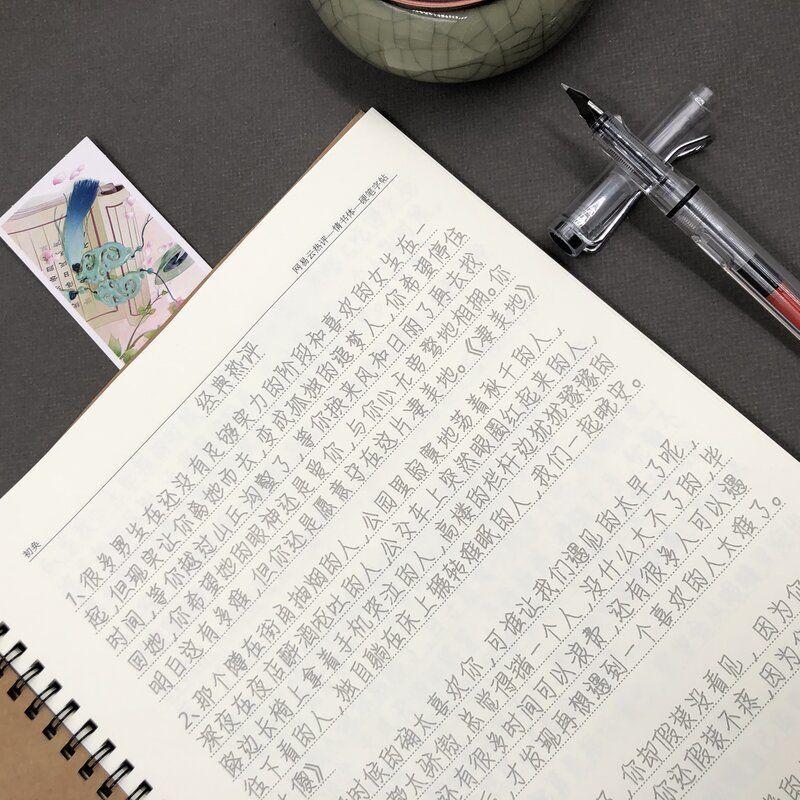 网易云热评—情书体—硬笔字帖
初央
经典热评
1、很多男生在还没有足够实力的阶段和喜欢的女生在一
起，但现实让你离她而去，变成孤独的追梦人，你希望停住
时间，等你越过山丘沟壑了，等你换来风和日丽了再去找
回她，你希望她的眼神还是爱你，与你心无旁骛地相拥。你
明白这有多难，但你还是愿意守在这片凄美地。《凄美地》
2、那个蹲在街角抽烟的人，公园里寂寞地荡着秋千的人，
深夜在夜店酗酒呕吐的人，公交车上突然眼圈红起来的人，
路边长椅上拿着手机哭泣的人，高楼的栏杆边犹犹豫豫的
往下看的人，独自躺在床上辗转难眠的人，我们一起晚安。
傲》
时候的确太喜欢你，可惜让我们遇见的太早了呢，
都太骄傲，总觉得错一个人，没什么大不了的，毕
还有很多时间可以浪费，还有很多人可以遇
，才发现再想遇到一个喜欢的人太难了。
，你却假装没看见，因为你
你还假装不疼，因为